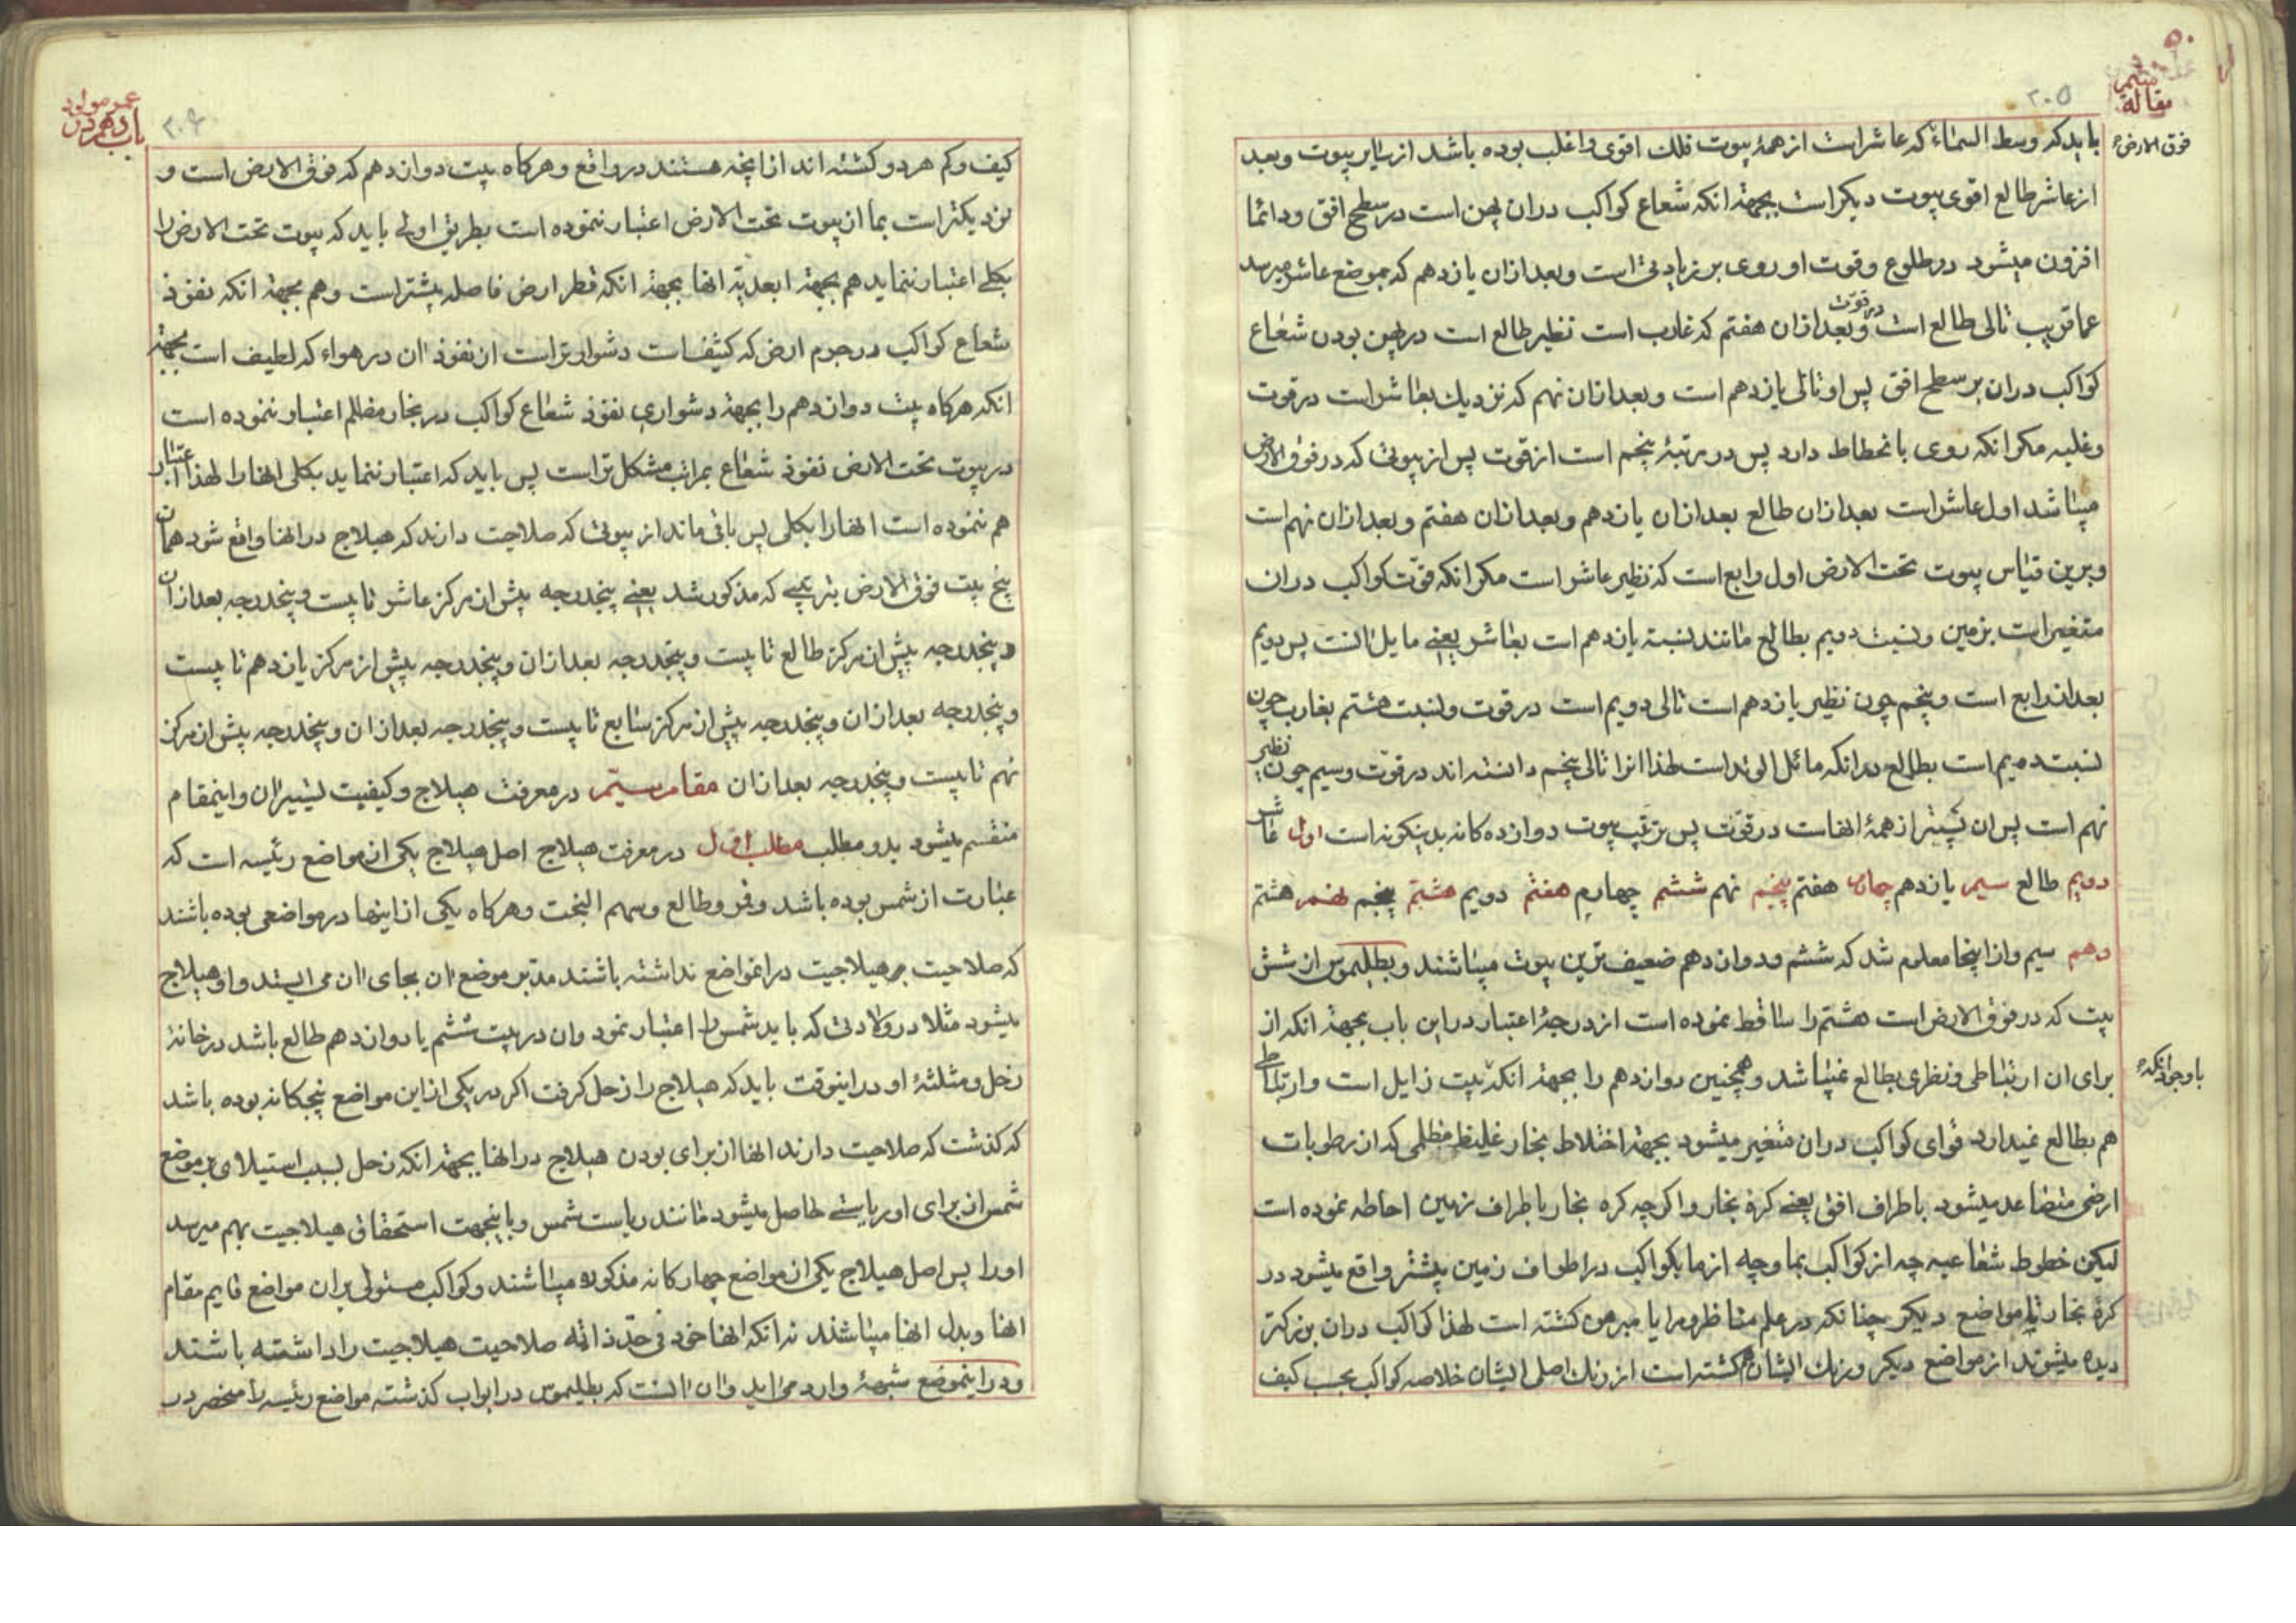 ۲۰۵
مقاله
فوق الارض
باید که وسط السماء که عاشر است از همهٔ بیوت فلک اقوی و اغلب بوده باشد از سایر بیوت و بعد
از عاشر طالع اقوی بیوت دیکر است بجهة انکه شعاع کواکب در ان پهن است در سطح افق و دائما
افزون میشود در طلوع و قوت او روی بر زیادتی است و بعد ازان یازدهم که بموضع عاشر میرسد
عما قریب تالی طالع است در قوت و بعد ازان هفتم که غارب است نظیر طالع است در پهن بودن شعاع
کواکب در ان بر سطح افق پس او تالی یازدهم است و بعد ازان نهم که نزدیک بعاشر است در قوت
و غلبه مکر انکه روی بانحطاط دارد پس در مرتبهٔ پنجم است از قوت پس از بیوتی که در فوق الارض
میباشد اول عاشر است بعد ازان طالع بعد ازان یازدهم و بعد ازان هفتم و بعد ازان نهم است
و برین قیاس بیوت تحت الارض اول رابع است که نظیر عاشر است مکر انکه قوت کواکب در ان
متغیر است بزمین و نسبت دویم بطالع مانند نسبة یازدهم است بعاشر یعنی مایل انست پس دویم
بعد از رابع است و پنجم چون نظیر یازدهم است تالی دویم است در قوت و نسبت هشتم بغارب چون
نسبت دویم است بطالع در انکه مائل الوتد است لهذا انرا تالی پنجم دانسته اند در قوت و سیم چون نظیر
نهم است پس ان پستتر از همهٔ انهاست در قوت پس ترتیب بیوت دوازده کانه بدینکونه است اول عاشر
دویم طالع سیم یازدهم چهارم هفتم پنجم نهم ششم چهارم هفتم دویم هشتم پنجم نهم هشتم
دهم سیم و از اینجا معلوم شد که ششم و دوازدهم ضعیف ترین بیوت میباشند و بطلیموس از شش
بیت که در فوق الارض است هشتم را ساقط نموده است از درجهٔ اعتبار در این باب بجهة انکه از
برای ان ارتباطی و نظری بطالع نمیباشد و همچنین دوازدهم را بجهة انکه بیت زایل است و ارتباطی
باوجود انکه
هم بطالع نمیدارد قوای کواکب در ان متغیر میشود بجهة اختلاط بخار غلیظ مظلمی که از رطوبات
ارضی متصاعد میشود باطراف افق یعنی کرهٔ بخار و اکرچه کره بخار باطراف زمین احاطه نموده است
لیکن خطوط شعاعیه چه از کواکب بما و چه از ما بکواکب در اطراف زمین بیشتر واقع میشود در
کرهٔ بخار تا بمواضع دیکر چنانکه در علم مناظر و مرایا مبرهن کشته است لهذا کواکب در ان بزرکتر
دیده میشوند از مواضع دیکر و رنک ایشان هم کشته است از رنک اصلی ایشان خلاصه کواکب بحسب کیف
۲۰۶
عمر مولود
باب دهم در
کیف و کم هر دو کشته اند از انچه هستند در واقع و هرکاه بیت دوازدهم که فوق الارض است و
نزدیکتر است بما از بیوت تحت الارض اعتبار ننموده است بطریق اولی باید که بیوت تحت الارض را
بکلی اعتبار ننماید هم بجهة ابعدیة انها بجهة انکه قطر ارض فاصله بیشتر است و هم بجهة انکه نفوذ
شعاع کواکب در جرم ارض که کثیفست دشوارتر است از نفوذ ان در هواء که لطیف است بجهة
انکه هرکاه بیت دوازدهم را بجهة دشواری نفوذ شعاع کواکب در بخار مظلم اعتبار ننموده است
در بیوت تحت الارض نفوذ شعاع بمراتب مشکل تر است پس باید که اعتبار ننماید بکلی انها را لهذا اعتبار
هم ننموده است انها را بکلی پس باقی ماند از بیوتی که صلاحیت دارند که هیلاج در انها واقع شود همان
پنج بیت فوق الارض بترتیبی که مذکور شد یعنی پنجدرجه پیش از مرکز عاشر تا بیست و پنجدرجه بعد ازان
و پنجدرجه پیش از مرکز طالع تا بیست و پنجدرجه بعد ازان و پنجدرجه پیش از مرکز یازدهم تا بیست
و پنجدرجه بعد ازان و پنجدرجه پیش از مرکز سابع تا بیست و پنجدرجه بعد ازان و پنجدرجه پیش از مرکز
نهم تا بیست و پنجدرجه بعد ازان مقام سیم در معرفت هیلاج و کیفیت تسییر ان و اینمقام
منقسم میشود بدو مطلب مطلب اول در معرفت هیلاج اصل هیلاج یکی از مواضع رئیسه است که
عبارت از شمس بوده باشد و قمر و طالع و سهم البخت و هرکاه یکی از اینها در مواضعی بوده باشند
که صلاحیت هیلاجیت در انمواضع نداشته باشند مدبر موضع ان بجای ان می ایستد و او هیلاج
میشود مثلا در ولادتی که باید شمس را اعتبار نمود و ان در بیت ششم یا دوازدهم طالع باشد در خانهٔ
زحل و مثلثهٔ او در اینوقت باید که هیلاج را زحل کرفت اکر در یکی از این مواضع پنجکانه بوده باشد
که کذشت که صلاحیت دارند انها از برای بودن هیلاج در انها بجهة انکه زحل بسبب استیلای بر موضع
شمس از برای او ریاستی حاصل میشود مانند ریاست شمس و باینجهت استحقاق هیلاجیت بهم میرسد
او را پس اصل هیلاج یکی از مواضع چهارکانه مذکوره میباشند و کواکب مستولی بر ان مواضع قایم مقام
انها و بدل انها میباشند نه انکه انها خود فی حد ذاته صلاحیت هیلاجیت را داشته باشند
و در اینموضع شبههٔ وارد می اید و ان انست که بطلیموس در ابواب کذشته مواضع رئیسه را منحصر در